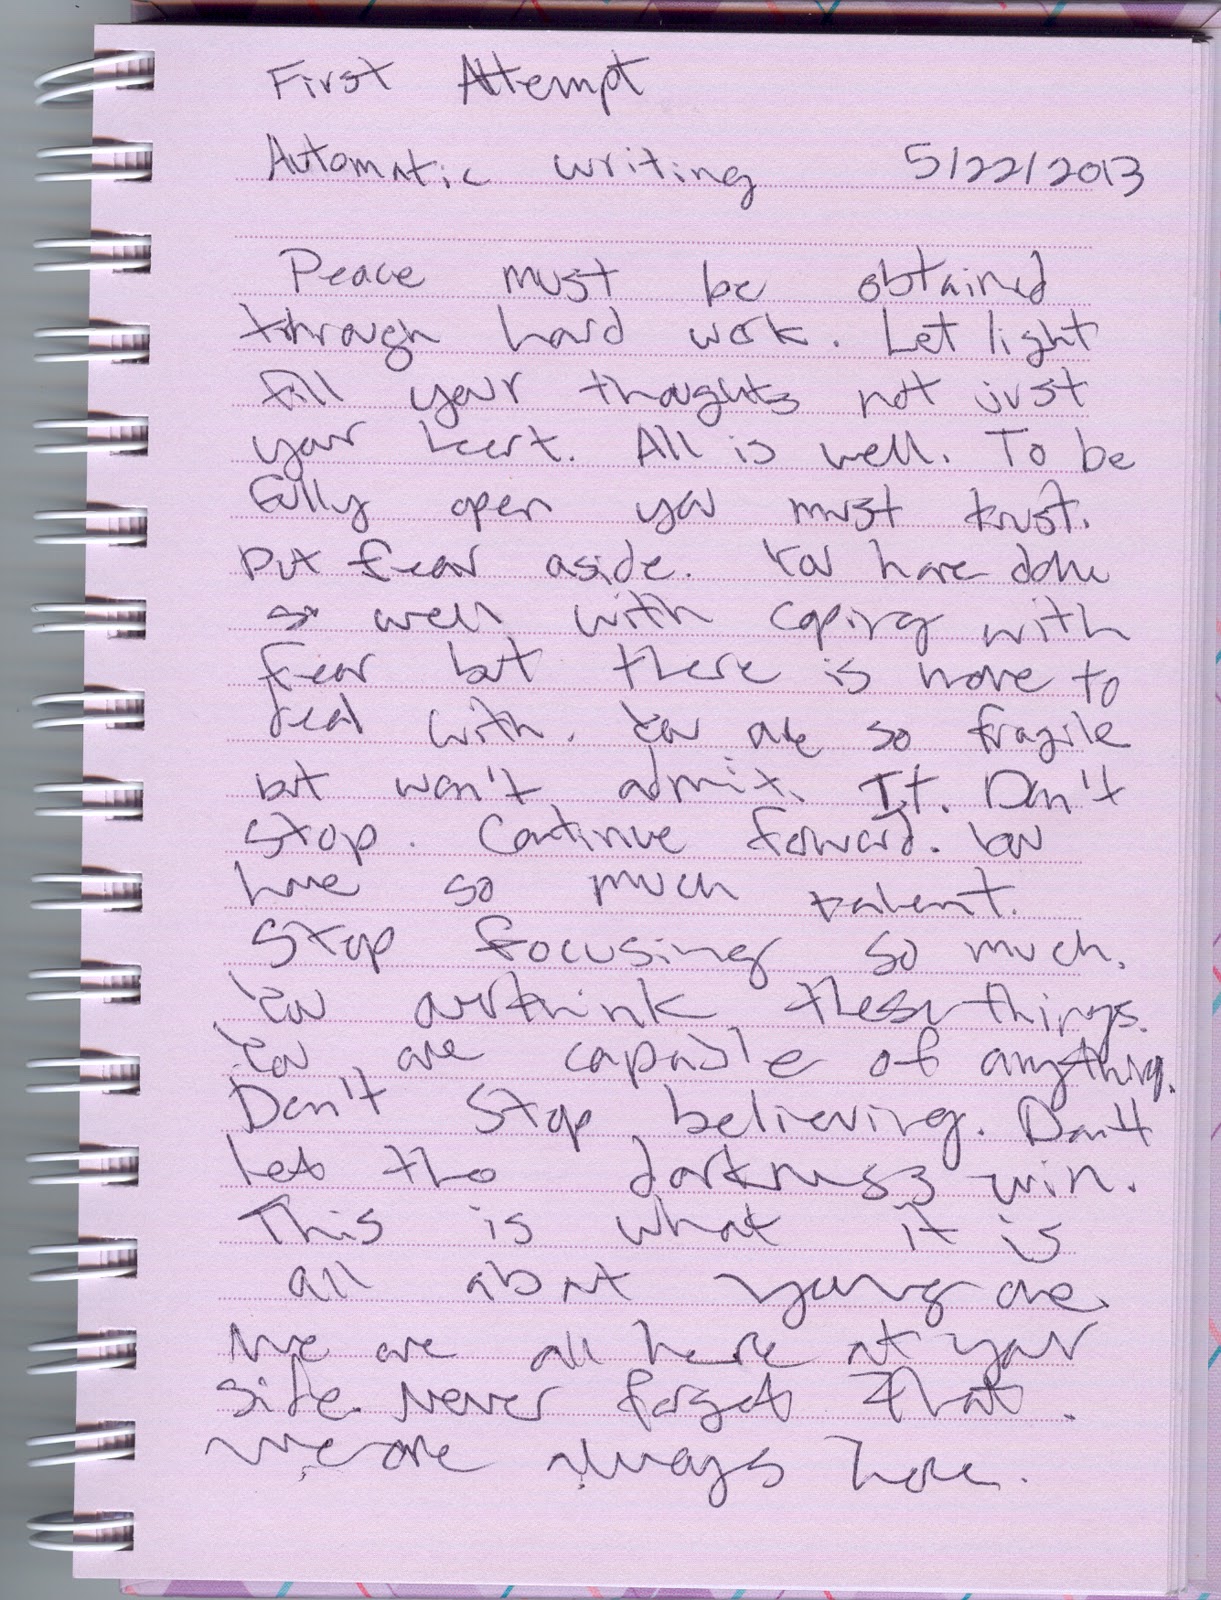 First Attempt
Automatic writing 5/22/2013
Peace must be obtained
through hard work. Let light
fill your thoughts not just
your heart. All is well. To be
fully open you must trust.
Put fear aside. You have done
so well with coping with
fear but there is more to
deal with. You are so fragile
but won't admit. It. Don't
stop. Continue forward. You
have so much talent.
Stop focusing so much.
You overthink these things.
You are capable of anything.
Don't stop believing. Don't
let the darkness win.
This is what it is
all about young one.
We are all here at your
side. Never forget that.
We are always here.